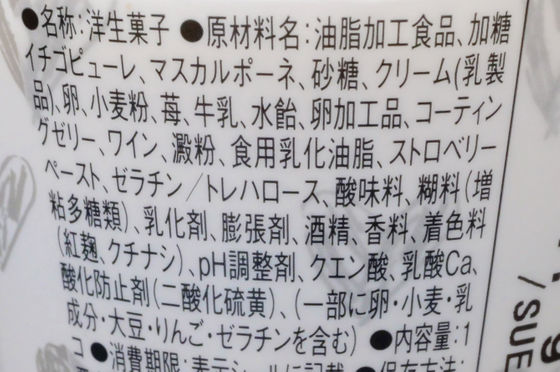 ●名称:洋生菓子 ●原材料名:油脂加工食品、加糖
イチゴピューレ、マスカルポーネ、砂糖、クリーム(乳製
品)、卵、小麦粉、苺、牛乳、水飴、卵加工品、コーティン
グゼリー、ワイン、澱粉、食用乳化油脂、ストロベリー
ペースト、ゼラチン/トレハロース、酸味料、糊料(増
粘多糖類)、乳化剤、膨張剤、酒精、香料、着色料
(紅麹、クチナシ)、pH調整剤、クエン酸、乳酸Ca、
酸化防止剤(二酸化硫黄)、(一部に卵・小麦・乳
成分・大豆・りんご・ゼラチンを含む) ●内容量:1
コ ●消費期限:表テシールに記載 ●保存方法:
/SUE